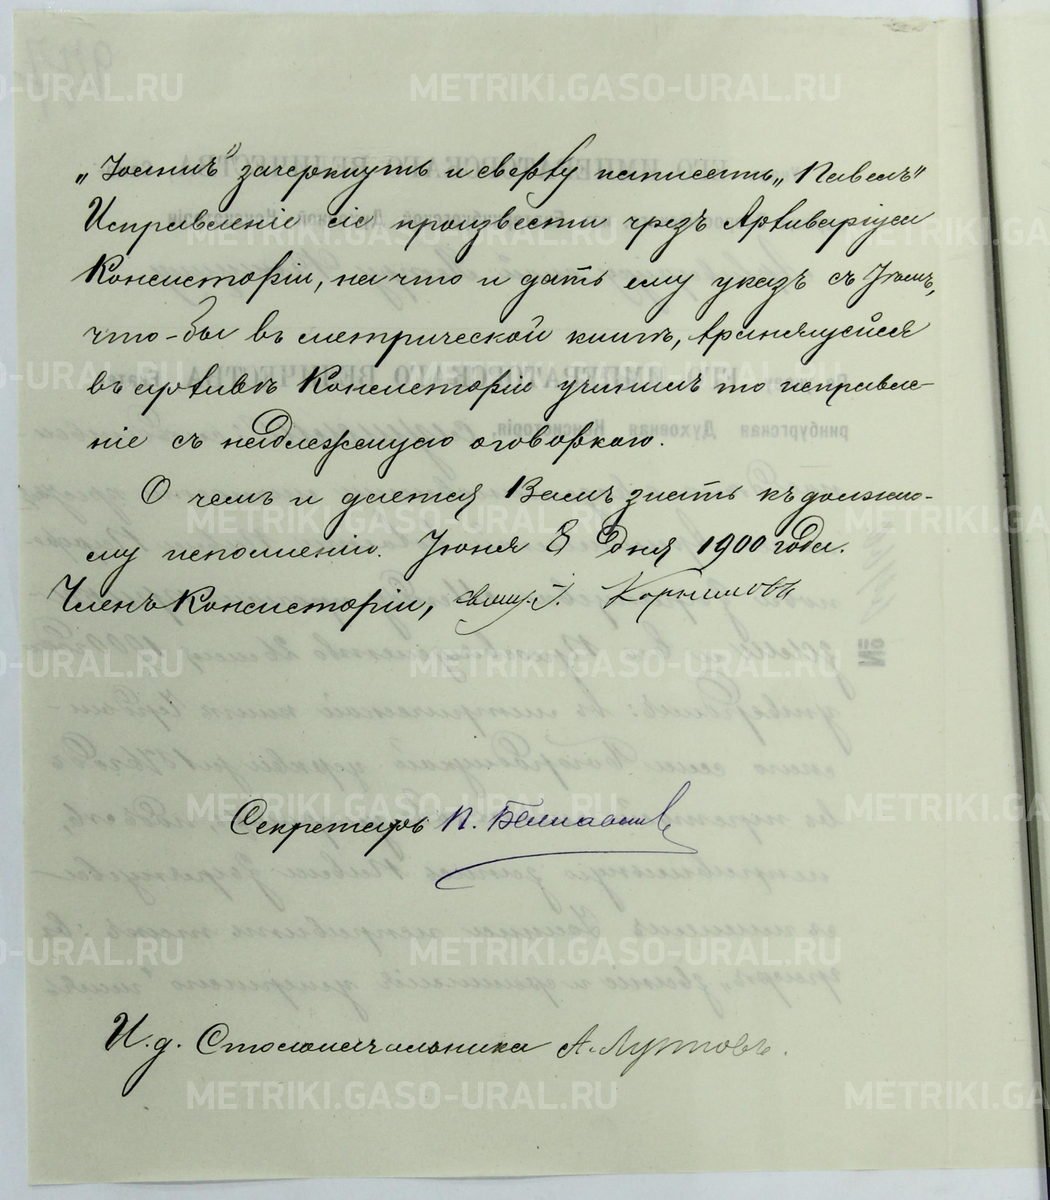 „Іоаннъ" зачеркнуть и сверху написать „Павелъ"
Исправленіе сіе произвести чрезъ Архиваріуса
Консисторіи, на что и дать ему указъ съ тѣмъ,
что-бы въ метрической книгѣ, хранящейся
въ архивѣ Консисторіи учинилъ то исправле-
ніе съ надлежащею оговоркою.
О чемъ и дается Вамъ знать къ должно-
му исполненію. Іюня 8 дня 1900 года.
Членъ Консисторіи, свящ. І.
Секретарь П.
И. д. Столоначальника А.
METRIKI.GASO-URAL.RU